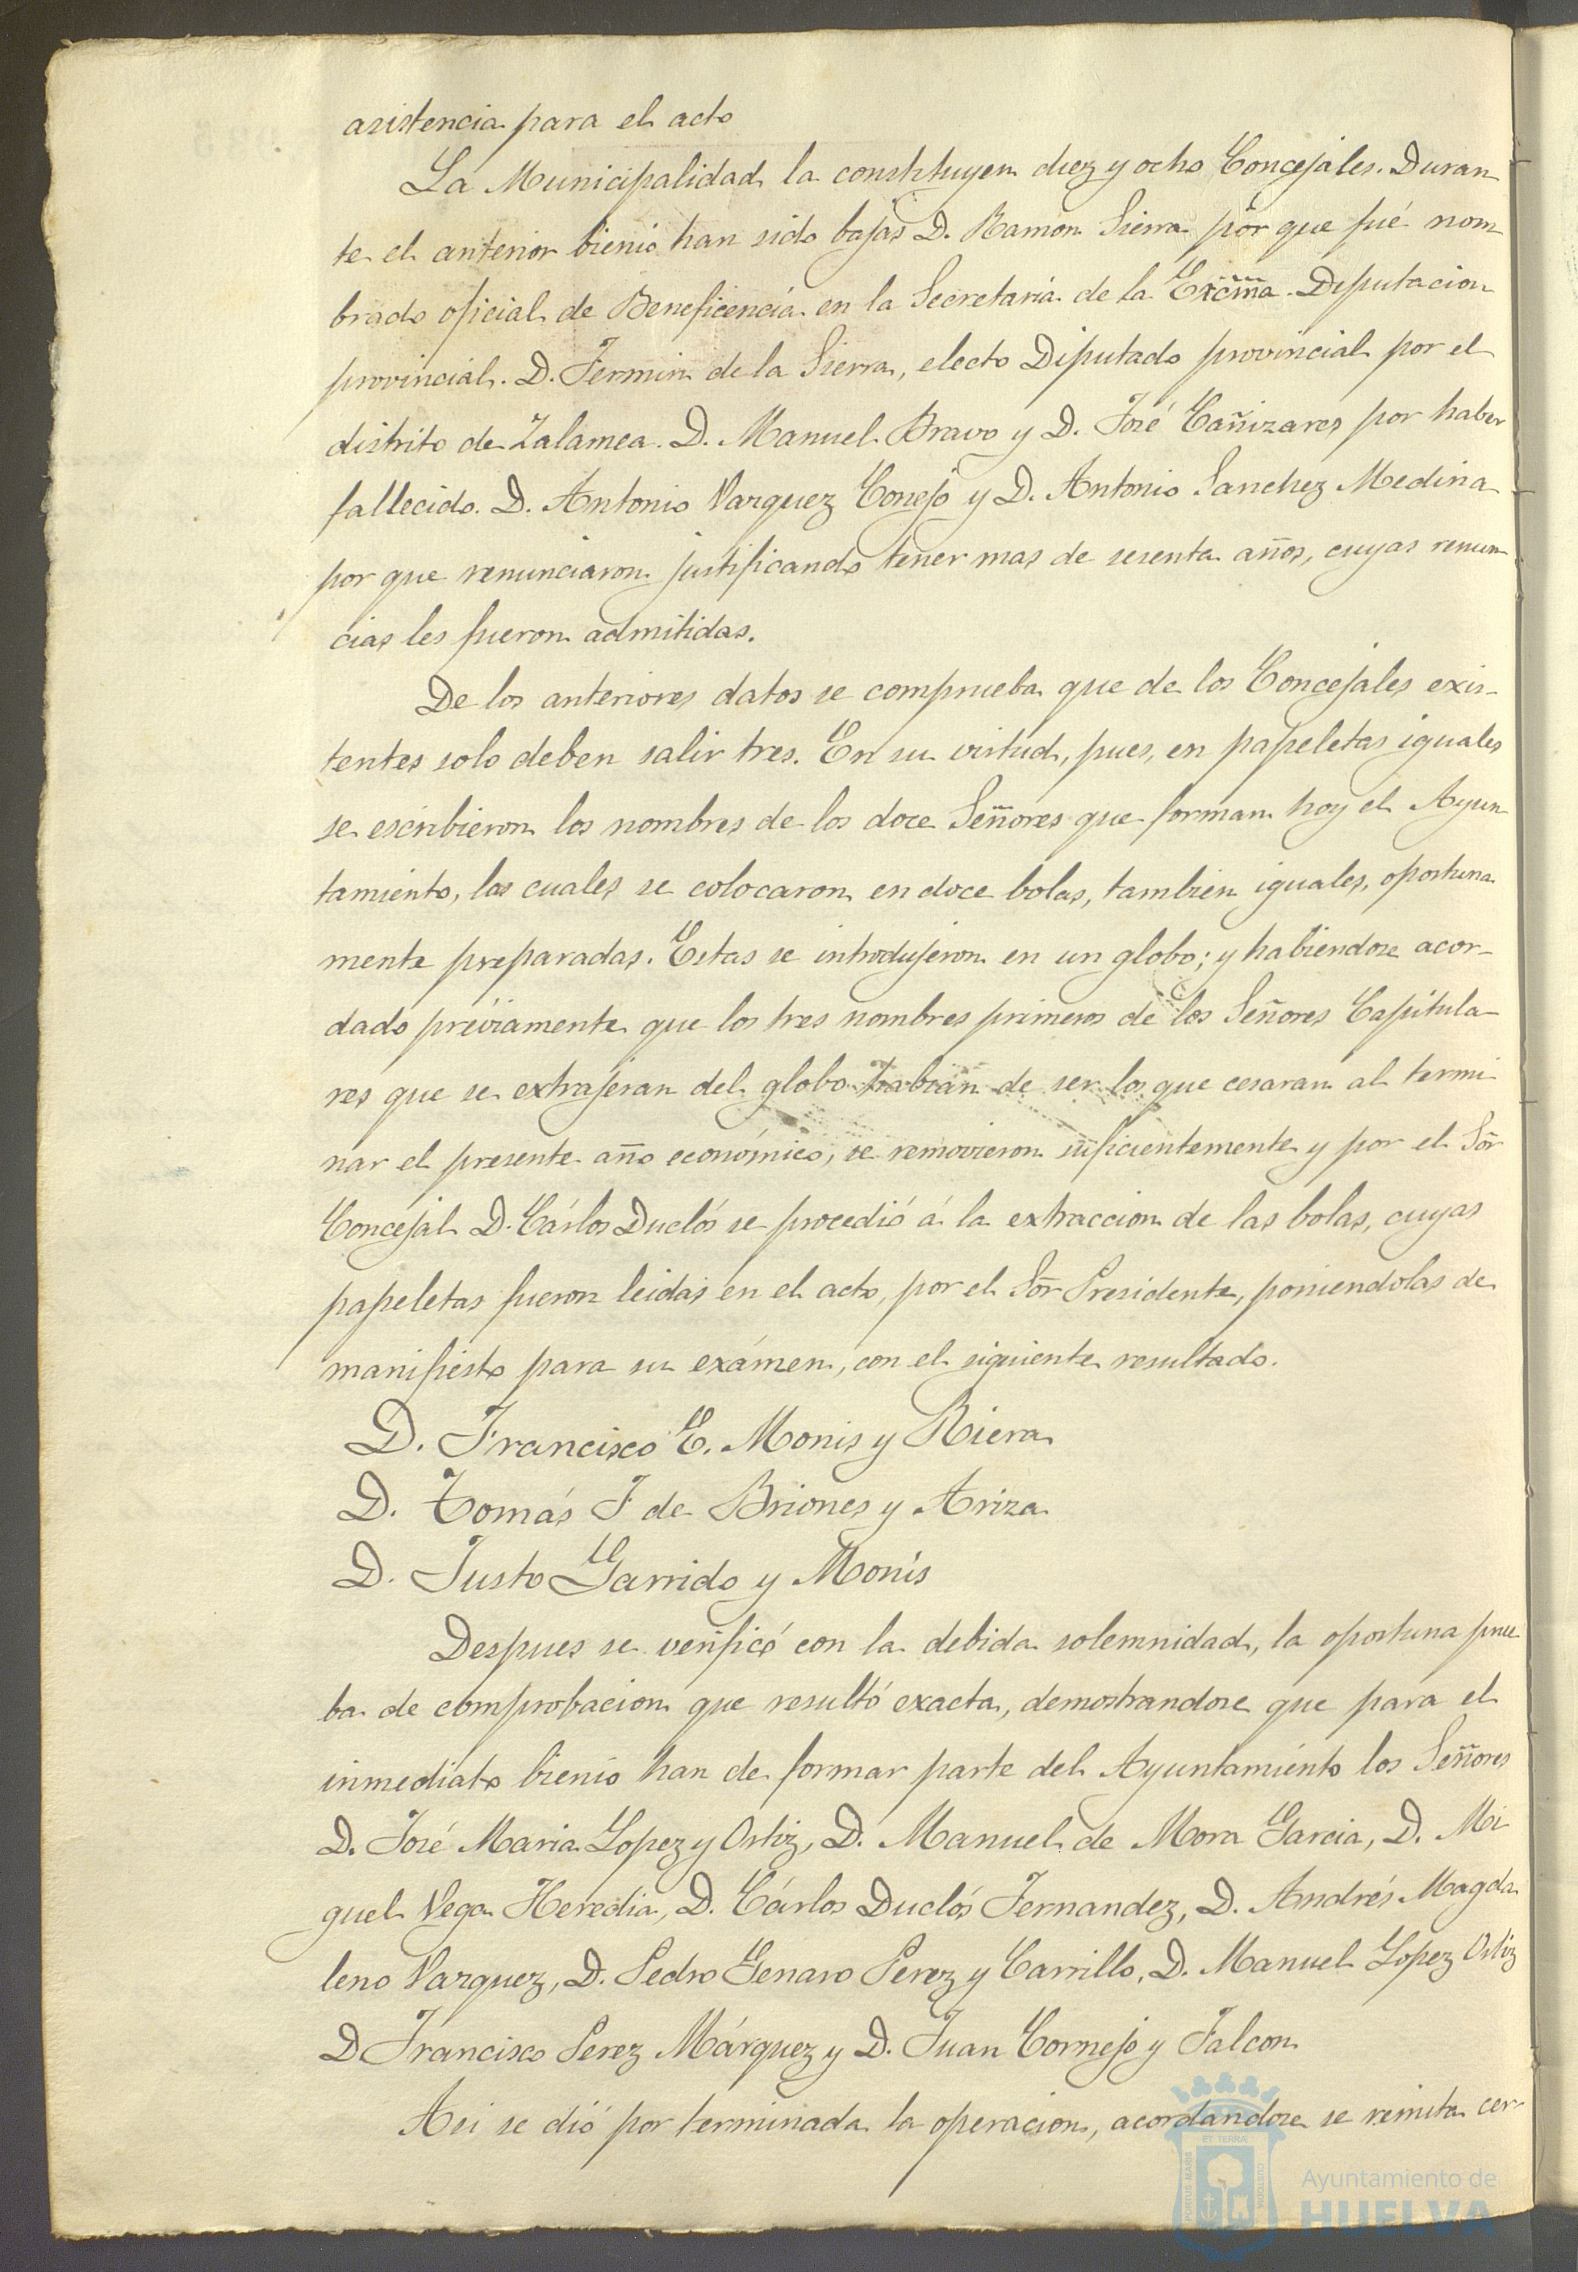 asistencia para el acto
La Municipalidad la constituyen diez y ocho Concejales. Duran
te el anterior bienio han sido bajas D. Ramon Sierra por que fué nom
brado oficial de Beneficencia en la Secretaria de la Excma. Diputacion
provincial. D. Fermin de la Sierra, electo Diputado provincial por el
distrito de Zalamea. D. Manuel Bravo y D. José Cañizares por haber
fallecido. D. Antonio Vazquez Conejo y D. Antonio Sanchez Medina
por que renunciaron justificando tener mas de sesenta años, cuyas renun
cias les fueron admitidas.
De los anteriores datos se comprueba que de los Concejales exis-
tentes solo deben salir tres. En su virtud, pues, en papeletas iguales
se escribieron los nombres de los doce Señores que forman hoy el Ayun
tamiento, las cuales se colocaron en doce bolas, tambien iguales, oportuna
mente preparadas. Estas se introdujeron en un globo; y habiendose acor-
dado préviamente que los tres nombres primeros de los Señores Capitula-
res que se extrajeran del globo habian de ser los que cesaran al termi-
nar el presente año económico, se removieron suficientemente y por el Sõr
Concejal D. Cárlos Duclós se procedió á la extraccion de las bolas, cuyas
papeletas fueron leidas en el acto, por el Sõr Presidente, poniendolas de
manifiesto para su exámen, con el siguiente resultado.
D. Francisco E. Monis y Riera
D. Tomás F de Briones y Ariza
D. Justo Garrido y Monis
Despues se verificó con la debida solemnidad, la oportuna prue
ba de comprobacion que resultó exacta, demostrandose que para el
inmediato bienio han de formar parte del Ayuntamiento los Señores
D. José Maria Lopez y Ortiz, D. Manuel de Mora Garcia, D. Mi
guel Vega Heredia, D. Cárlos Duclós Fernandez, D. Andrés Magda
leno Vazquez, D. Pedro Genaro Perez y Carrillo, D. Manuel Lopez Ortiz
D Francisco Perez Márquez y D. Juan Cornejo y Falcon
Asi se dió por terminada la operacion, acordandose se remita cer-
PORTUS MARIS
ET TERRA
CUSTODIA
Ayuntamiento de
HUELVA